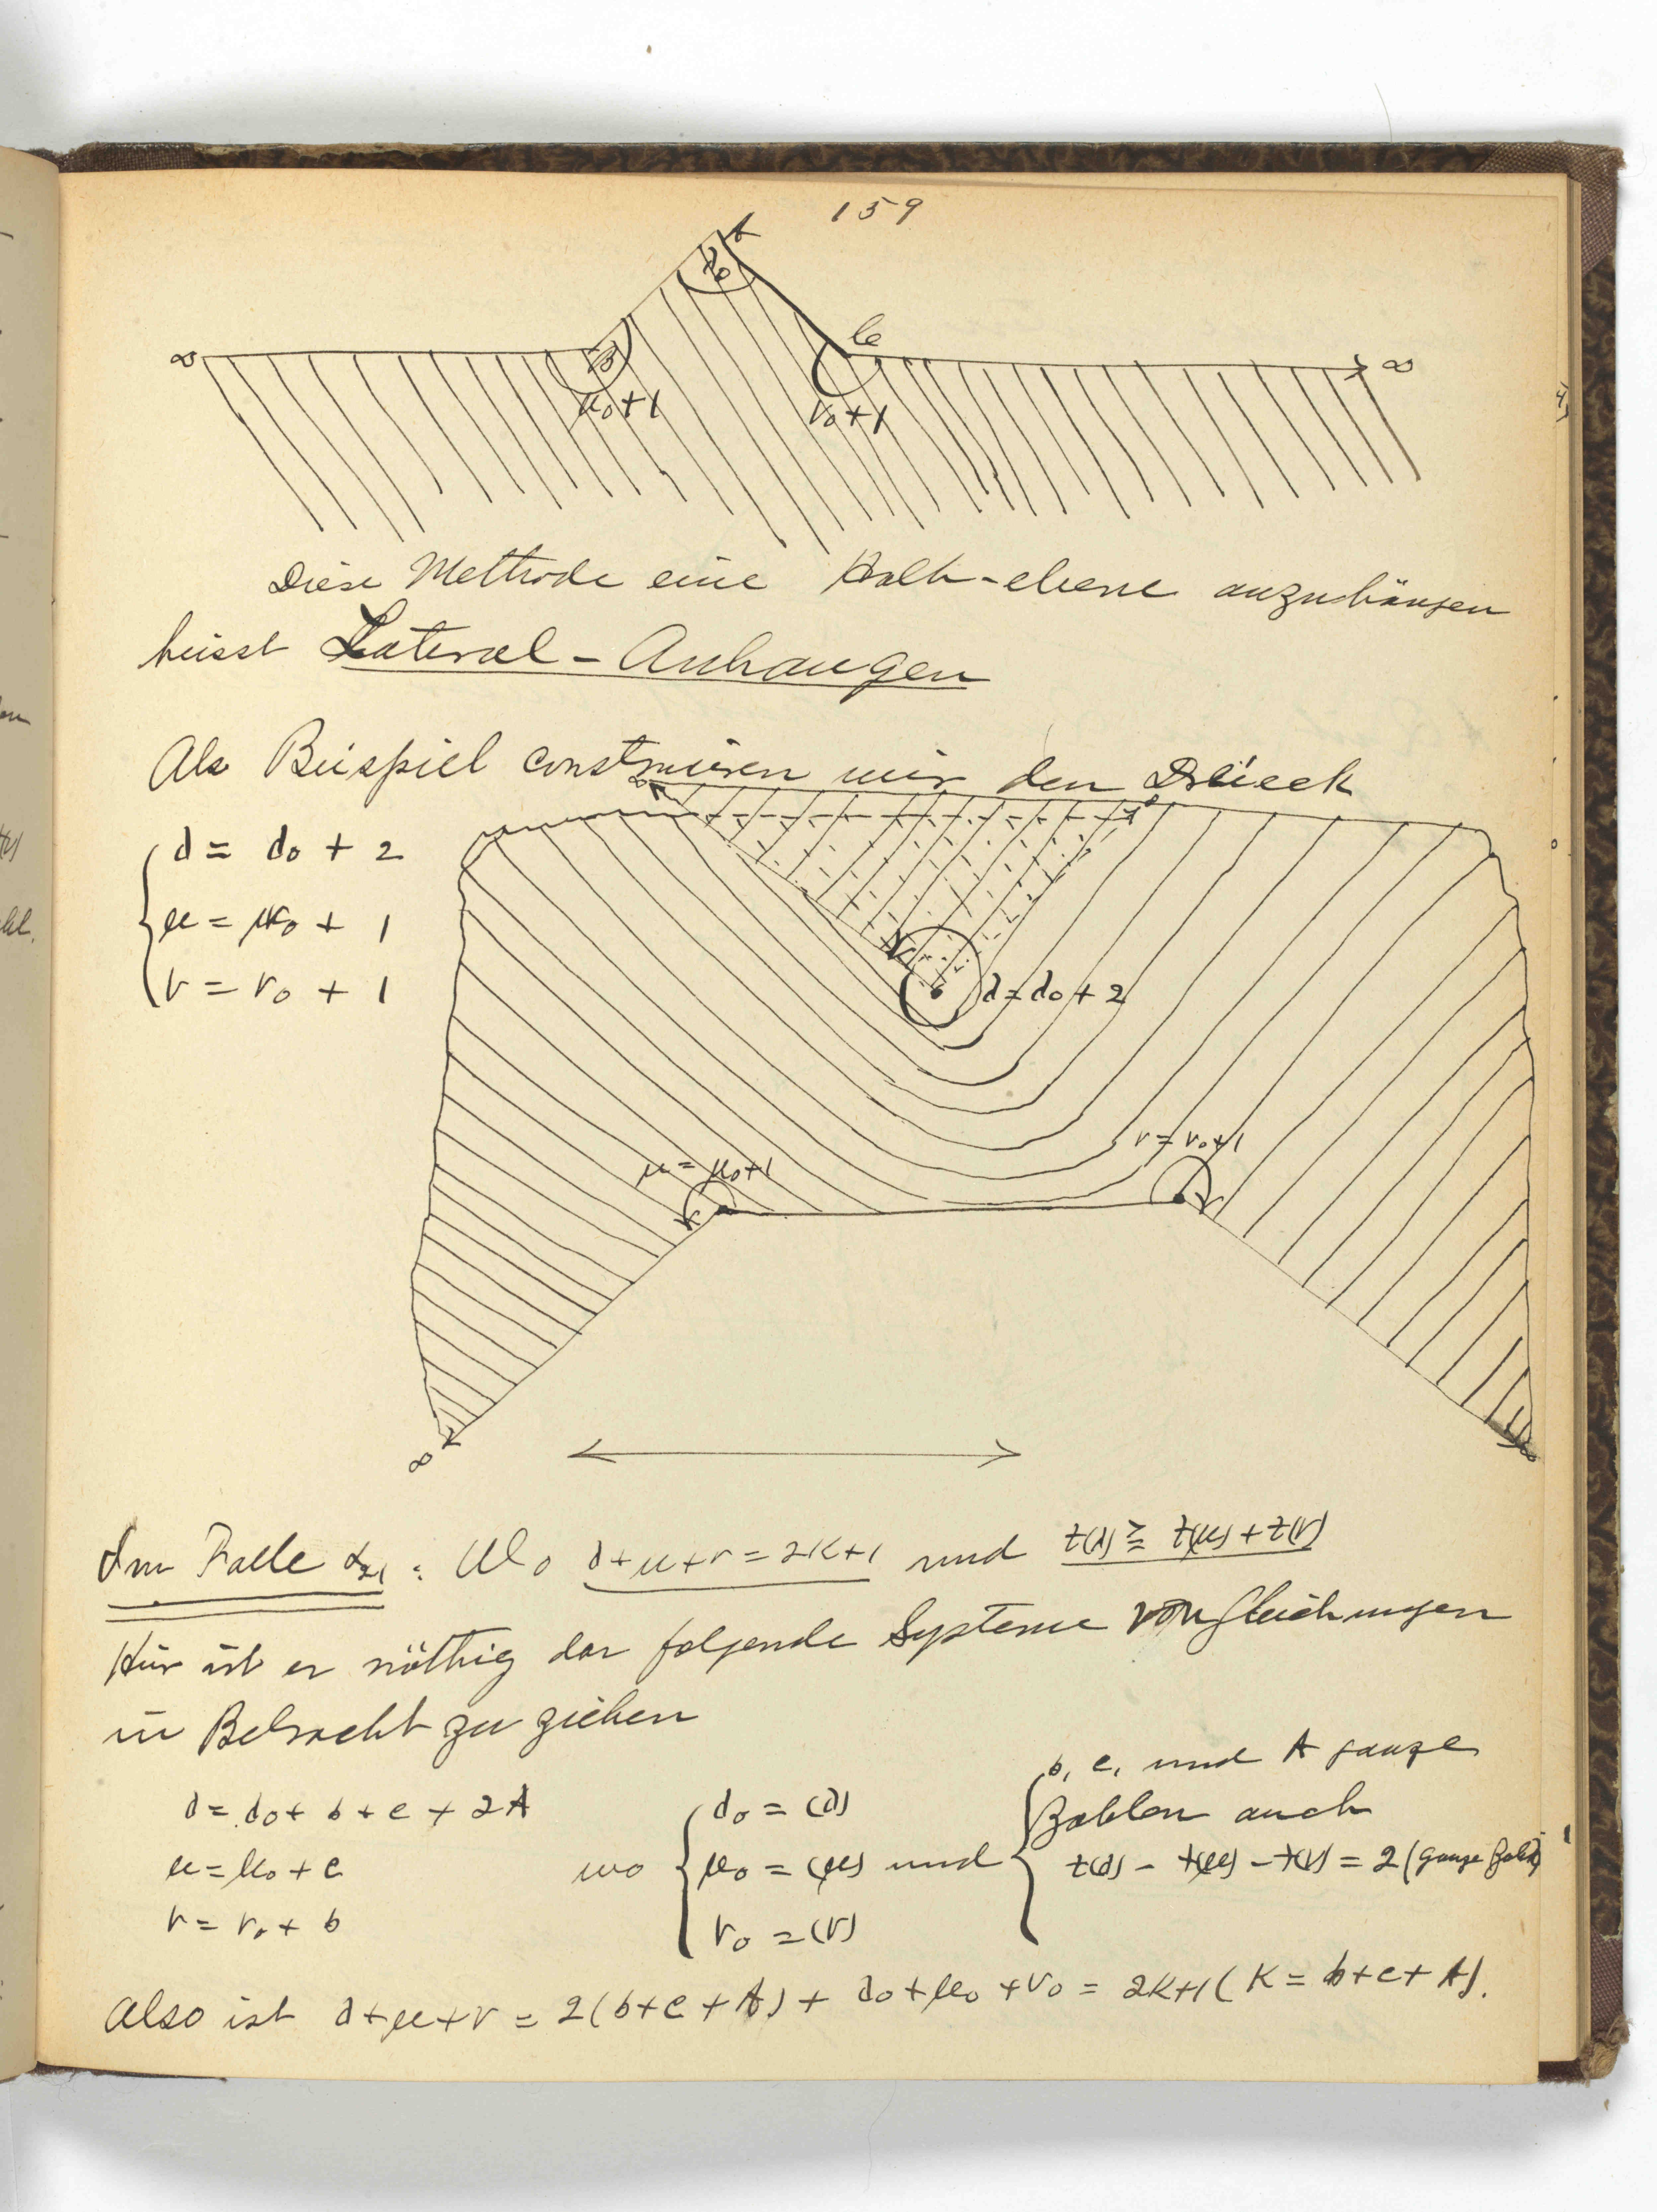 159
A
λ₀
∞
B
C
∞
μ₀+1
ν₀+1
Diese Methode eine Halb-ebene anzuhängen
heisst Lateral-Anhangen
Als Beispiel construiren wir den Dreieck
λ = λ₀ + 2
μ = μ₀ + 1
ν = ν₀ + 1
λ=λ₀+2
μ=μ₀+1
ν=ν₀+1
∞
∞
Im Falle : Wo λ+μ+ν=2K+1 und t(λ) ≧ t(μ)+t(ν)
Hier ist es nöthig das folgende Systeme von Gleichungen
in Betracht zu ziehen
b, c, und A ganze
λ=λ₀+b+c+2A
λ₀=(λ)
Zahlen auch
μ=μ₀+c
wo
μ₀=(μ) und
t(λ)-t(μ)-t(ν)=2(ganze Zahl)
ν=ν₀+b
ν₀=(ν)
Also ist λ+μ+ν=2(b+c+A)+λ₀+μ₀+ν₀=2K+1(K=b+c+A).